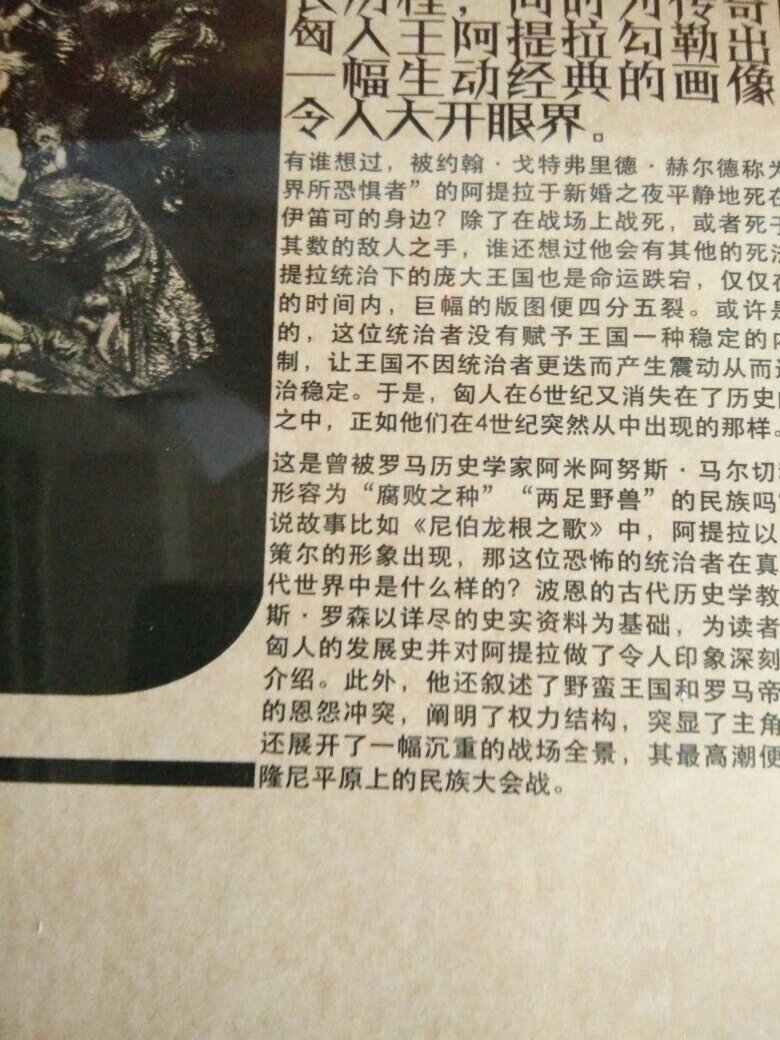 历程，同时为传奇
匈人王阿提拉勾勒出
一幅生动经典的画像
令人大开眼界。
有谁想过，被约翰·戈特弗里德·赫尔德称为
界所恐惧者”的阿提拉于新婚之夜平静地死在
伊笛可的身边？除了在战场上战死，或者死于
其数的敌人之手，谁还想过他会有其他的死法
提拉统治下的庞大王国也是命运跌宕，仅仅在
的时间内，巨幅的版图便四分五裂。或许是
的，这位统治者没有赋予王国一种稳定的内
制，让王国不因统治者更迭而产生震动从而
治稳定。于是，匈人在6世纪又消失在了历史
之中，正如他们在4世纪突然从中出现的那样。
这是曾被罗马历史学家阿米阿努斯·马尔切
形容为“腐败之种”“两足野兽”的民族吗
说故事比如《尼伯龙根之歌》中，阿提拉以
策尔的形象出现，那这位恐怖的统治者在真
代世界中是什么样的？波恩的古代历史学教
斯·罗森以详尽的史实资料为基础，为读者
匈人的发展史并对阿提拉做了令人印象深刻
介绍。此外，他还叙述了野蛮王国和罗马帝
的恩怨冲突，阐明了权力结构，突显了主角
还展开了一幅沉重的战场全景，其最高潮便
隆尼平原上的民族大会战。